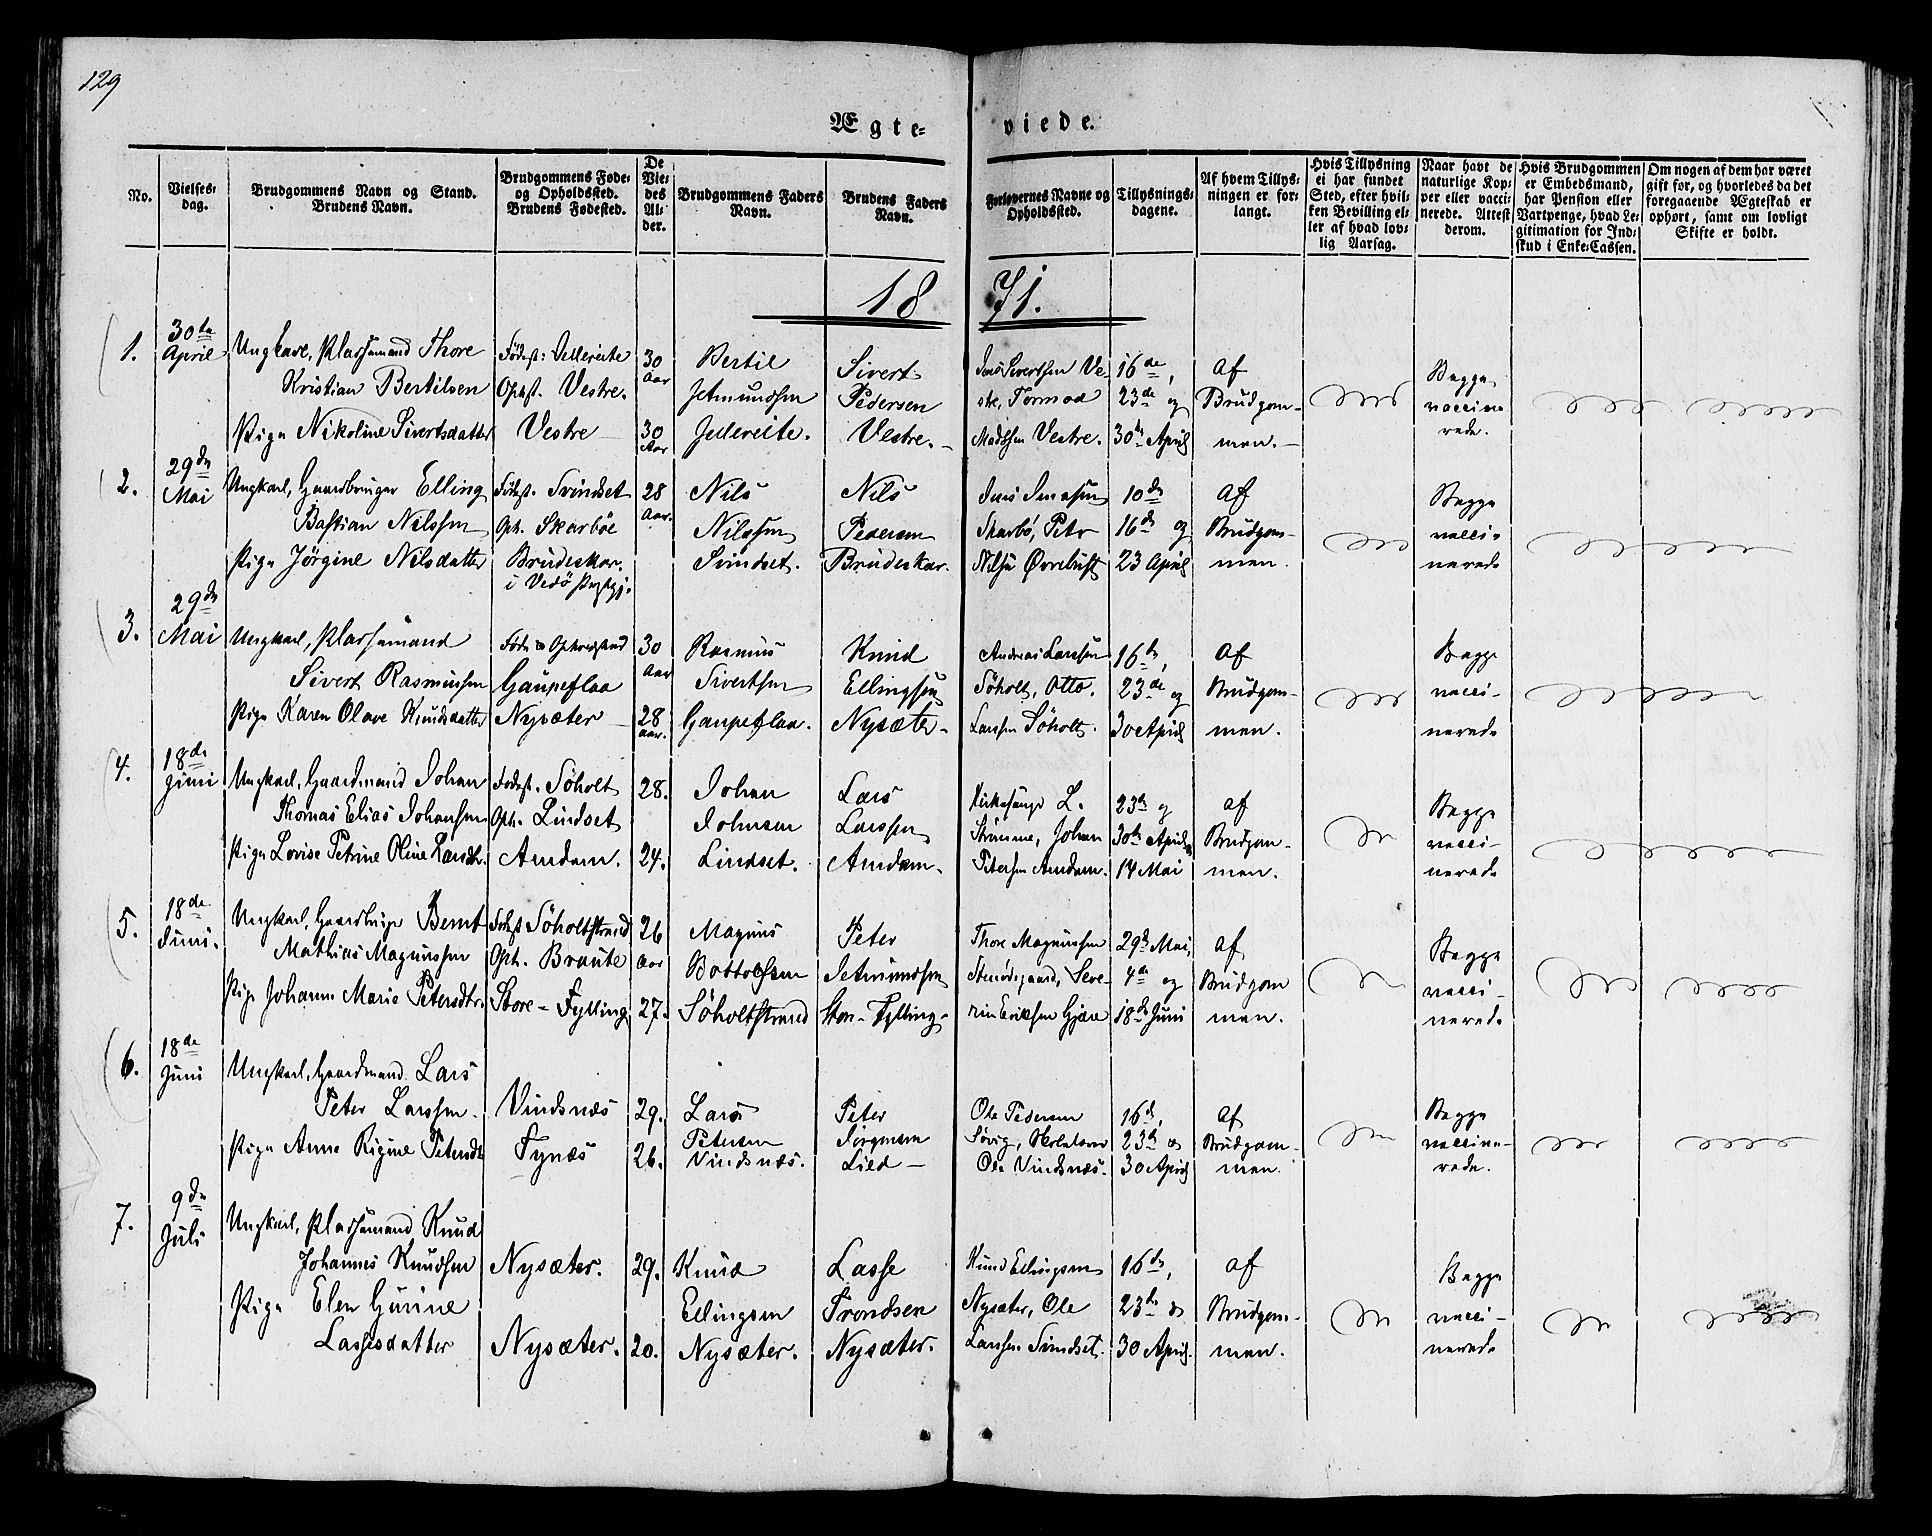 129
Ægte-
viede.
No.
Vielses-
dag.
Brudgommens Navn og Stand.
Brudens Navn.
Brudgommens Føde-
og Opholdssted.
Brudens Fødested.
De
Vie-
des
Al-
der.
Brudgommens Faders
Navn.
Brudens Faders
Navn.
Forlovernes Navne og
Opholdssted.
Tillysnings-
dagene.
Af hvem Tillys-
ningen er for-
langt.
Hvis Tillysning
ei har fundet
Sted, efter hvil-
ken Bevilling el-
ler af hvad lov-
lig Aarsag.
Naar havt de
naturlige Kop-
per eller vacci-
nerede. Attest
derom.
Hvis Brudgommen
er Embedsmand,
har Pension eller
Vartpenge, hvad Le-
gitimation for Ind-
skud i Enke-Cassen.
Om nogen af dem har været
gift før, og hvorledes da det
foregaaende Ægteskab er
ophørt, samt om lovligt
Skifte er holdt.
1871.
1.
30te
April
Ungkarl, Pladsemand Thore
Kristian Bertilsen
Pige Nikoline Sivertsdatter
Fødest: Jellereite
Ophst. Vestre.
Vestre
30
Aar
30
Aar
Bertil
Jetmundsen
Jellereite.
Sivert
Pedersen
Vestre.
Jens Sivertsen Ve-
stre, Tormod
Madssen Vestre.
16de,
23de og
30te April
Af
Brudgom-
men.
Begge
vaccine
rede.
2.
29de
Mai
Ungkarl, Gaardbruger Elling
Bastian Nilssen
Pige Jörgine Nilsdatter
Fødest. Svindset
Oph. Skarbøe
Brudeskar.
i Vedö Præstgj.
28
Aar.
Nils
Nilssen
Svindset.
Nils
Pedersen
Brudeskar.
Jens Jenssen
Skarbö, Peter
Nilsen Øvrelust
10de
16de og
23 April
Af
Brudgom-
men.
Begge
vacci-
nerede
3.
29de
Mai
Ungkarl, Pladsemand
Sivert Rasmussen
Pige Karen Olave Knudsdatter
Føde &
Gaupeflaa
Nysæter
30
Aar
28
Aar.
Rasmus
Sivertsen
Gaupeflaa.
Knud
Ellingsen
Nysæter
Andreas Larssen
Söholt, Otto
Larssen Söholt.
16de,
23de og
30 April
Af
Brudgom-
men.
Begge
vacci-
nerede
4.
18de
Juni
Ungkarl, Gaardmand Johan
Thomas Elias Johansen
Pige Lovise Petrine Oline
Fødest. Söholt
Oph. Lindset
Amdam.
28.
24.
Johan
Johnsen
Lindset.
Lars
Larssen
Amdam.
Kirkesanger L.
Strømme, Johan
Petersen Amdam.
23de og
30te April
14 Mai
af
Brudgom-
men.
Begge
vacci-
nerede
5.
18de
Juni.
Ungkarl, Gaardbruger Bernt
Mathias Magnussen
Pige Johanne Marie Petersdtr.
Fødest Söholtstrand
Oph. Braute
Store-Fylling
26
Aar
27.
Magnus
Bottolfsen
Söholtstrand
Peter
Jetmundsen
Store-Fylling
Thore Magnussen
29de Mai,
4de og
18de Juni
rin Eriksen Gjære
af
Brudgom
men.
Begge
vacci-
nerede
6.
18de
Juni
Ungkarl, Gaardmand Lars
Peter Larssen.
Pige Anne Rigine Petersdt
Vindsnæs
Fynæs
29.
26.
Lars
Petersen
Vindsnæs.
Peter
Jörgensen
Lied
Ole Pedersen
Ole Vindsnæs.
16de,
23de &
30 April
af
Brudgom-
men.
Begge
vaccine-
rede.
7.
9de
Juli
Ungkarl, Pladsemand Knud
Johannes Knudsen
Pige Elen Gurine
Lassesdatter
Nysæter.
Nysæter.
29.
20.
Knud
Ellingsen
Nysæter.
Lasse
Trondsen
Nysæter.
Knud Ellingsen
Nysæter, Ole
Larssen Svindset.
16de,
23de &
30 April.
af
Brudgom-
men.
Begge
vacci-
nerede